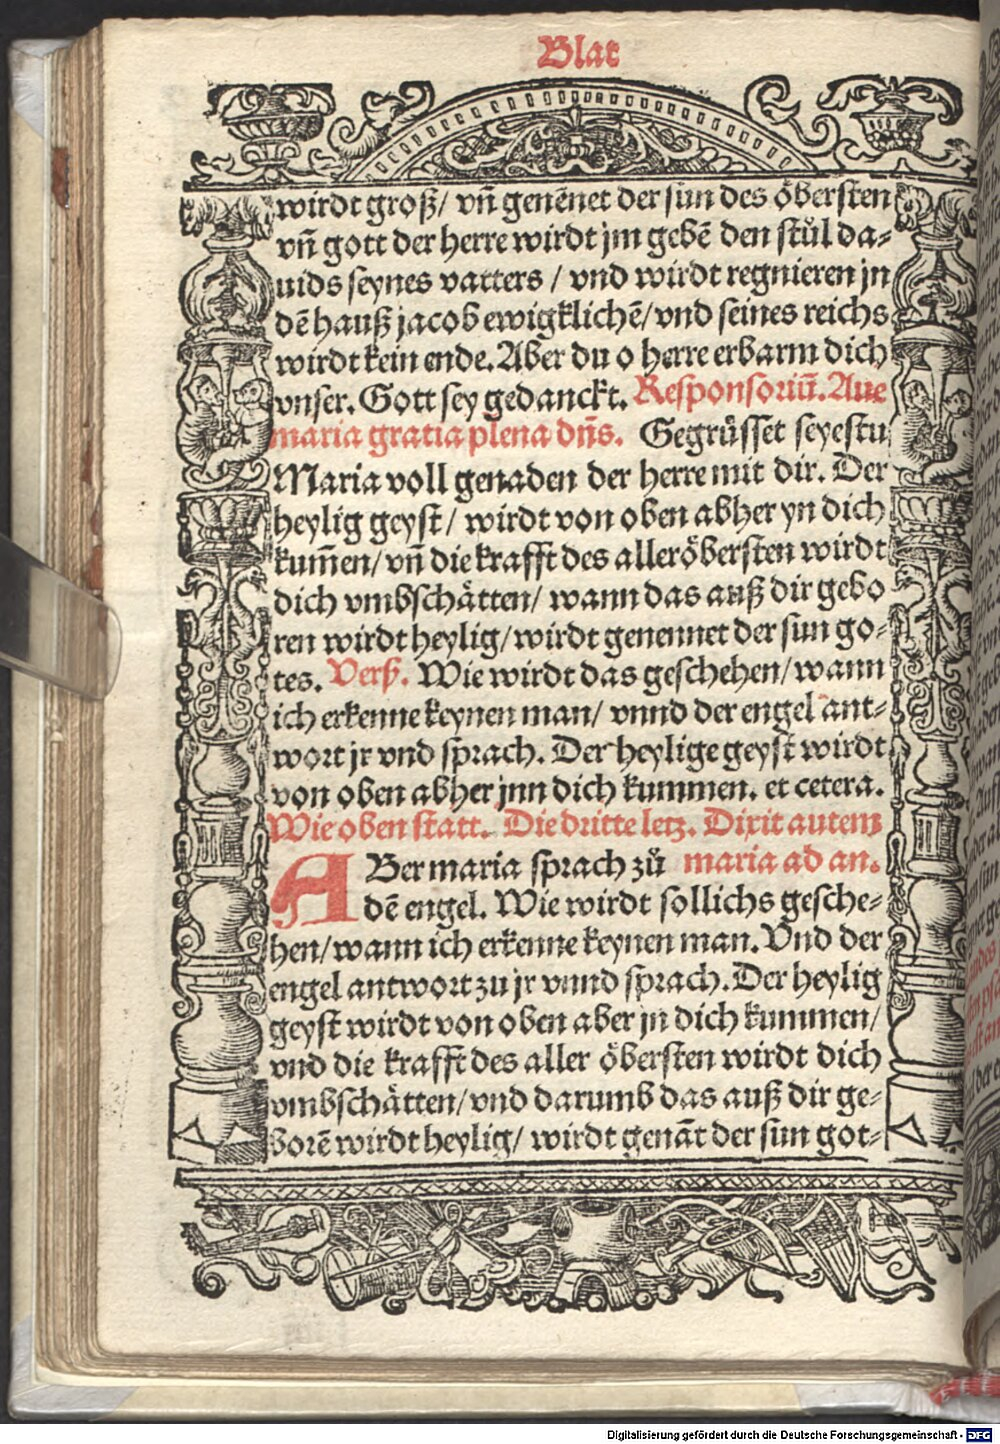 Blat
wirdt groß/ vñ genẽnet der sun des öbersten
vñ gott der herre wirdt jm gebẽ den stůl da⸗
uids seynes vatters / vnd wirdt regnieren jn
dẽ hauß jacob ewigklichẽ/ vnd seines reichs
wirdt kein ende. Aber du o herre erbarm dich
vnser. Gott sey gedanckt. Responsoriũ. Aue
maria gratia plena dñs. Gegrüsset seyestu
Maria voll genaden der herre mit dir. Der
heylig geyst/ wirdt von oben abher yn dich
kum̃en/ vñ die krafft des alleröbersten wirdt
dich vmbschätten/ wann das auß dir gebo
ren wirdt heylig/ wirdt genennet der sun go⸗
tes. Verß. Wie wirdt das geschehen/ wann
ich erkenne keynen man/ vnnd der engel ant⸗
wort jr vnd sprach. Der heylige geyst wirdt
von oben abher jnn dich kummen. et cetera.
Wie oben statt. Die dritte letz. Dixit autem
ABer maria sprach zů maria ad an.
dẽ engel. Wie wirdt sollichs gesche⸗
hen/ wann ich erkenne keynen man. Vnd der
engel antwort zu jr vnnd sprach. Der heylig
geyst wirdt von oben aber jn dich kummen/
vnd die krafft des aller öbersten wirdt dich
vmbschätten/ vnd darumb das auß dir ge⸗
borẽ wirdt heylig/ wirdt genãt der sun got⸗
Digitalisierung gefördert durch die Deutsche Forschungsgemeinschaft - DFG